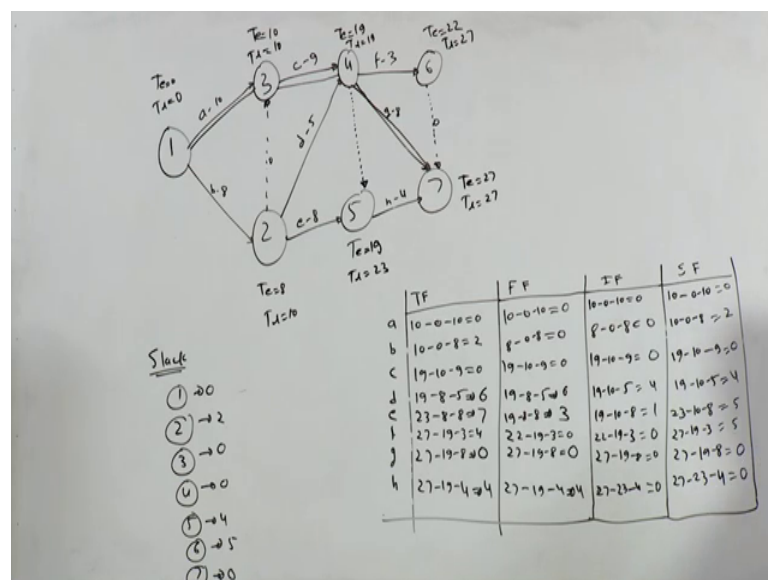 Te=10
TL=10
Te=19
TL=19
Te=22
TL=27
Te=0
TL=0
a-10
3
c-9
4
f-3
6
1
b-8
0
d-5
g-8
0
2
e-8
5
h-4
7
Te=27
TL=27
Te=8
TL=10
Te=19
TL=23
TF FF IF SF
a 10-0-10=0 10-0-10=0 10-0-10=0 10-0-10=0
b 10-0-8=2 8-0-8=0 8-0-8=0 10-0-8=2
c 19-10-9=0 19-10-9=0 19-10-9=0 19-10-9=0
d 19-8-5=6 19-8-5=6 19-10-5=4 19-10-5=4
e 23-8-8=7 19-8-8=3 19-10-8=1 23-10-8=5
f 27-19-3=4 22-19-3=0 22-19-3=0 27-19-3=5
g 27-19-8=0 27-19-8=0 27-19-8=0 27-19-8=0
h 27-19-4=4 27-19-4=4 27-23-4=0 27-23-4=0
Slack
1 → 0
2 → 2
3 → 0
4 → 0
5 → 4
6 → 5
7 → 0